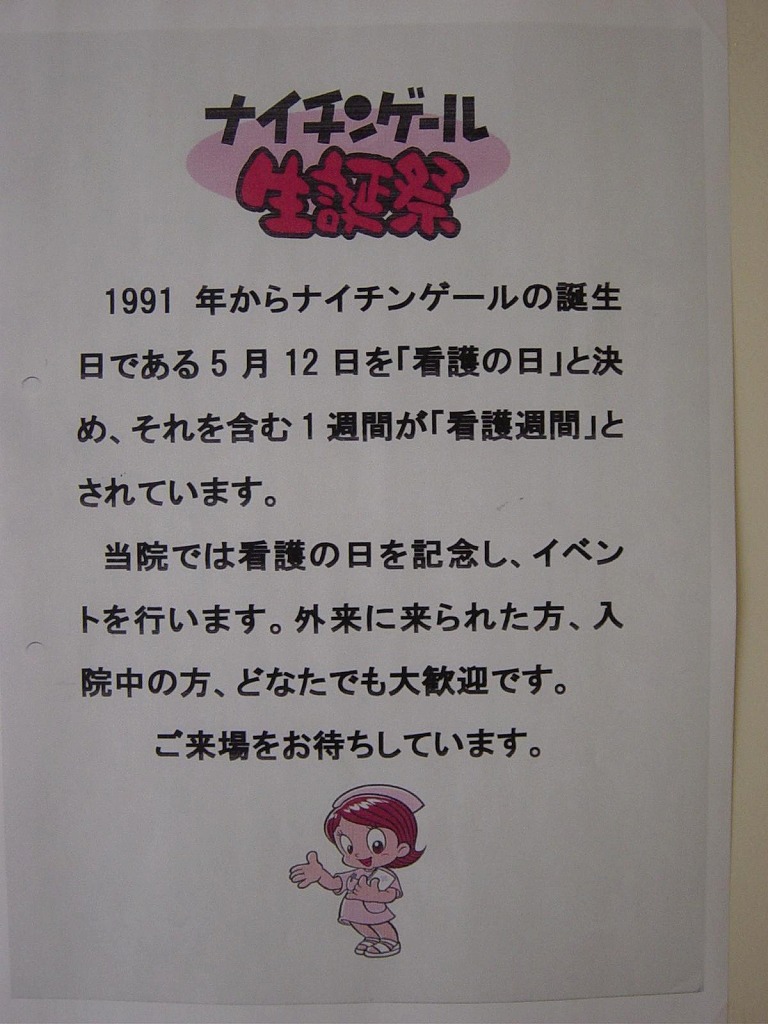 ナイチンゲール
生誕祭
1991 年からナイチンゲールの誕生
日である 5 月 12 日を「看護の日」と決
め、それを含む 1 週間が「看護週間」と
されています。
当院では看護の日を記念し、イベン
トを行います。外来に来られた方、入
院中の方、どなたでも大歓迎です。
ご来場をお待ちしています。